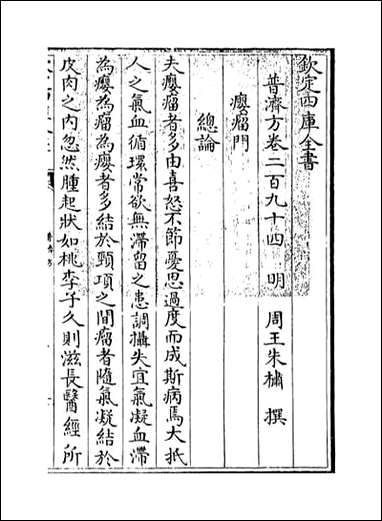 欽定四庫全書
普濟方卷二百九十四 明 周王朱橚 撰
癭瘤門
總論
夫癭瘤者多由喜怒不節憂思過度而成斯病焉大抵
人之氣血循環常欲無滯留之患調攝失宜氣凝血滯
為癭為瘤為癭者多結於頸項之間瘤者隨氣凝結於
皮肉之內忽然腫起狀如桃李子久則滋長醫經所